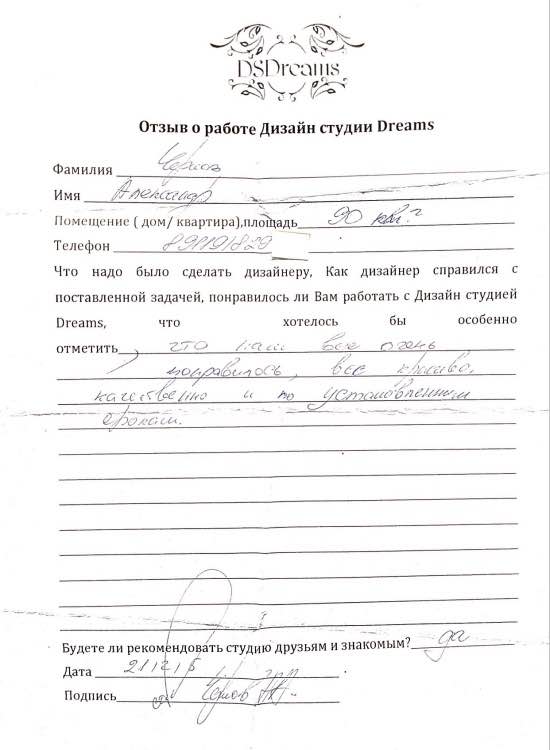 DSDreams
Отзыв о работе Дизайн студии Dreams
Фамилия Чернов
Имя Александр
Помещение ( дом/ квартира),площадь 90 кв.²
Телефон
Что надо было сделать дизайнеру, Как дизайнер справился с
поставленной задачей, понравилось ли Вам работать с Дизайн студией
Dreams, что хотелось бы особенно
отметить, что нам все очень
понравилось, все красиво,
качественно и по установленным
срокам.
Будете ли рекомендовать студию друзьям и знакомым? да
Дата
Подпись Чернов